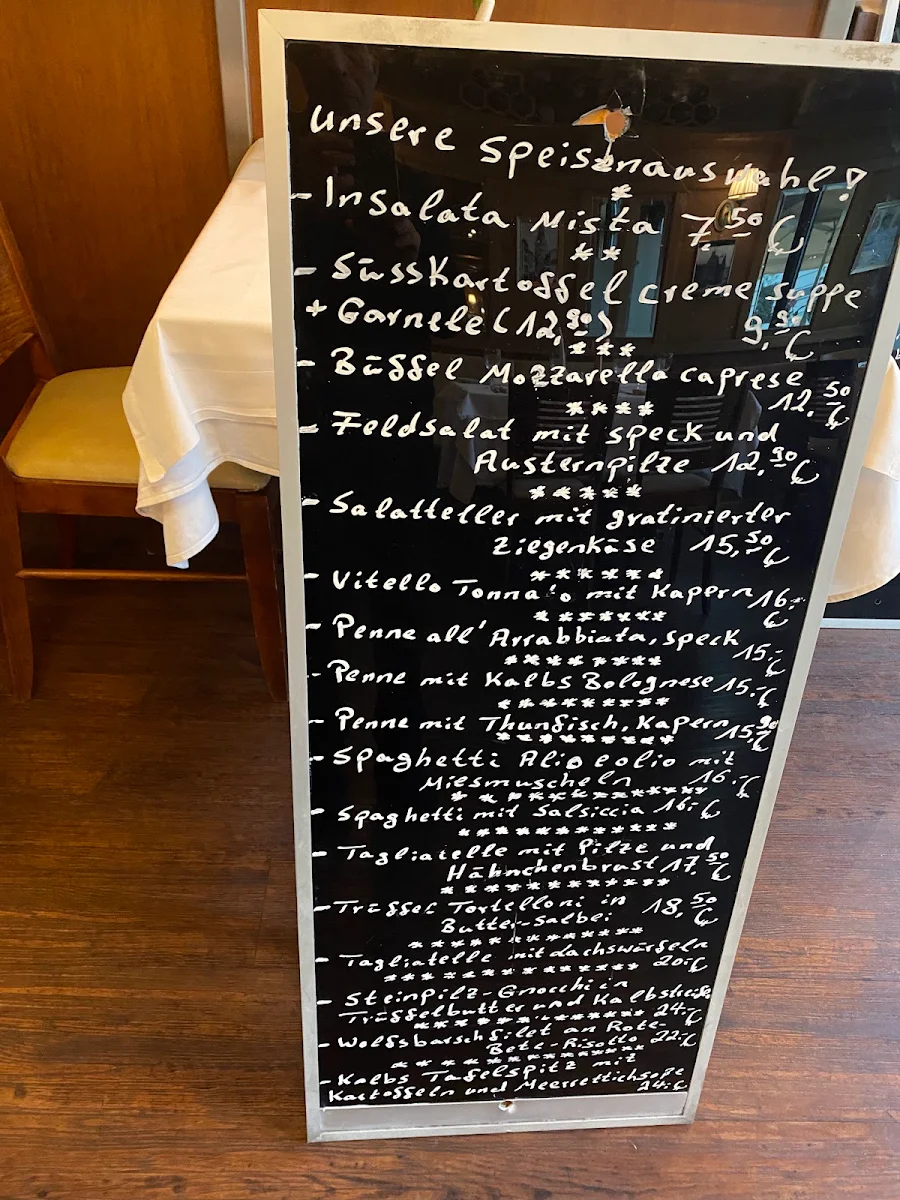 unsere Speisenauswahl!
*
- Insalata Mista 7,50 €
* *
- Süsskartoffel creme suppe
+ Garnele (12,90) 9,90 €
* * *
- Büffel Mozzarella caprese
12,50 €
* * * *
- Feldsalat mit speck und
Austernpilze 12,90 €
* * * * *
- Salatteller mit gratinierter
Ziegenkäse 15,50 €
* * * * * *
- Vitello Tonna'o mit Kapern 16,- €
* * * * * * *
- Penne all' Arrabbiata, speck
15,- €
* * * * * * * *
- Penne mit Kalbs Bolognese 15,- €
* * * * * * * * *
- Penne mit Thunfisch, Kapern 15,90 €
* * * * * * * * * *
- Spaghetti Alio eolio mit
Miesmuscheln 16,- €
* * * * * * * * * * *
- Spaghetti mit Salsiccia 16,- €
* * * * * * * * * * * *
- Tagliatelle mit Pilze und
Hähnchenbrust 17,50 €
* * * * * * * * * * * *
- Trüffel Tortelloni in 18,50 €
Butter-Salbei
* * * * * * * * * * * *
- Tagliatelle mit dachswürfeln
20,- €
* * * * * * * * * * * * *
- Steinpilz-Gnocchi in
Trüffelbutter und Kalbstreife
24,- €
* * * * * * * * * * * *
- Wolfsbarschfilet an Rote-
Bete-Risotto 22,- €
* * * * * * * * * * * * *
- Kalbs Tafelspitz mit
Kartoffeln und Meerrettichsoße
24,- €